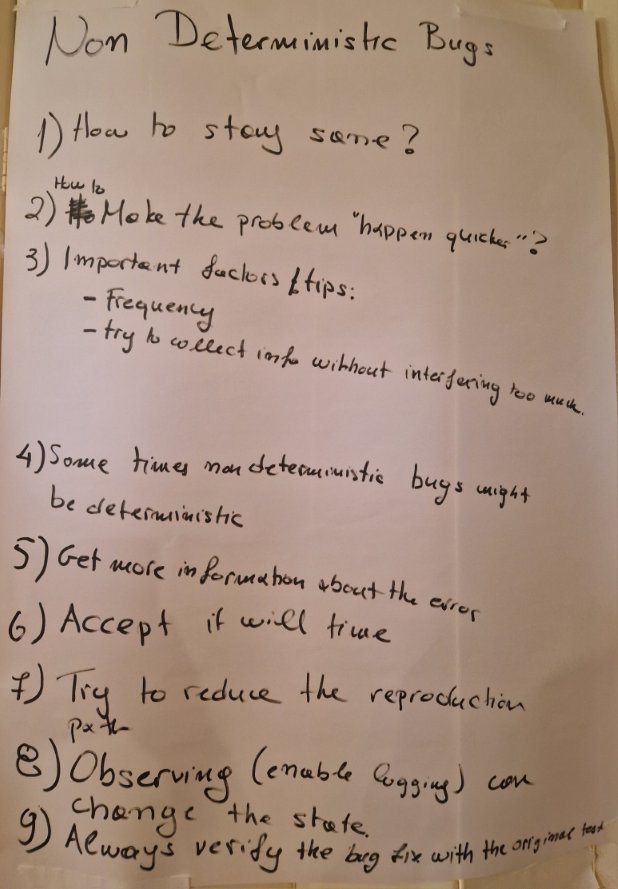 Non Deterministic Bugs
1) How to stay sane?
How to
2) Make the problem "happen quicker"?
3) Important factors / tips:
- Frequency
- try to collect info without interfering too much.
4) Some times non deterministic bugs might
be deterministic
5) Get more information about the error
6) Accept it will time
7) Try to reduce the reproduction
path
8) Observing (enable logging) can
change the state.
9) Always verify the bug fix with the original test